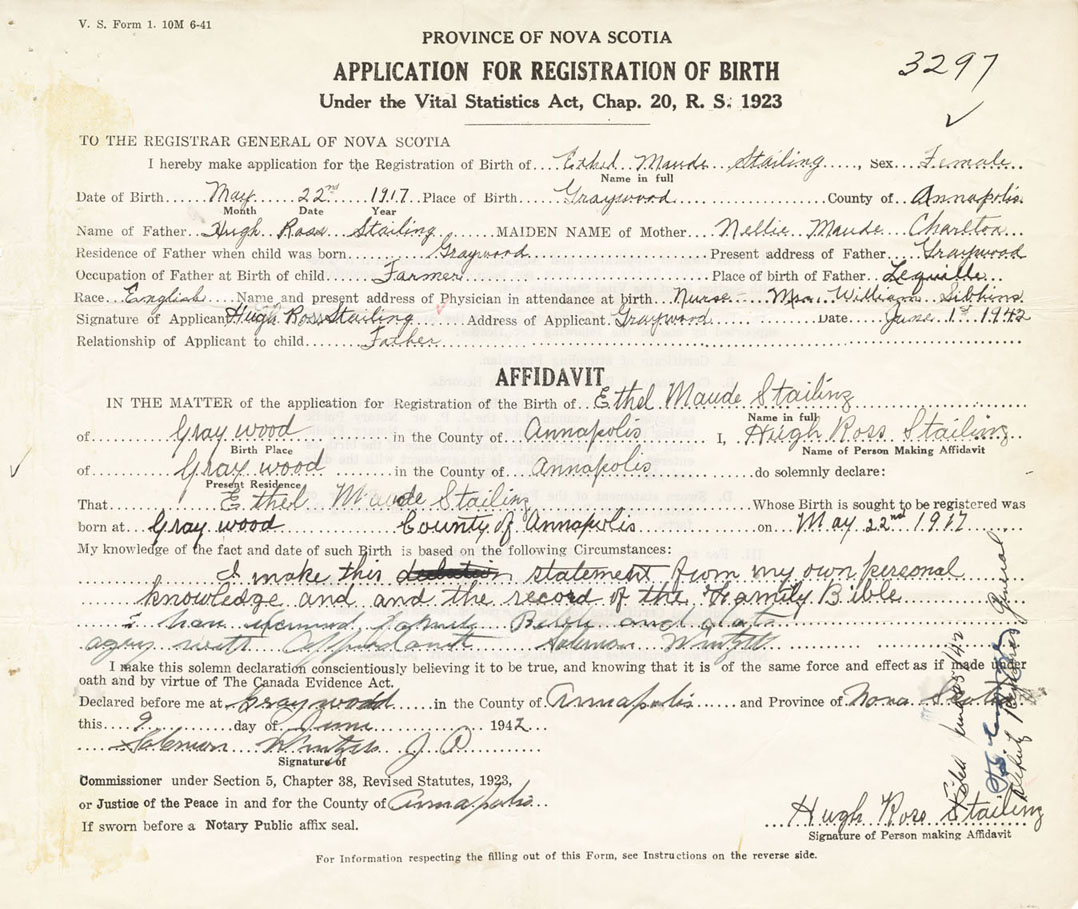 V. S. Form 1. 10M 6-41
PROVINCE OF NOVA SCOTIA
3297
APPLICATION FOR REGISTRATION OF BIRTH
Under the Vital Statistics Act, Chap. 20, R. S. 1923
TO THE REGISTRAR GENERAL OF NOVA SCOTIA
I hereby make application for the Registration of Birth of Ethel Maude Stailing, Sex Female
Name in full
Date of Birth May 22nd 1917 Place of Birth Graywood County of Annapolis
Month Date Year
Name of Father Hugh Ross Stailing MAIDEN NAME of Mother Nellie Maude Charlton
Residence of Father when child was born Graywood Present address of Father Graywood
Occupation of Father at Birth of child Farmer Place of birth of Father Lequille
Race English Name and present address of Physician in attendance at birth Nurse Mrs. William Sibbins
Signature of Applicant Hugh Ross Stailing Address of Applicant Graywood Date June 1st 1942
Relationship of Applicant to child Father
AFFIDAVIT
IN THE MATTER of the application for Registration of the Birth of Ethel Maude Stailing
Name in full
of Graywood in the County of Annapolis I, Hugh Ross Stailing
Birth Place Name of Person Making Affidavit
of Graywood in the County of Annapolis do solemnly declare:
Present Residence
That Ethel Maude Stailing Whose Birth is sought to be registered was
born at Graywood County of Annapolis on May 22nd 1917
My knowledge of the fact and date of such Birth is based on the following Circumstances:
I make this statement from my own personal
knowledge and and the record of the Family Bible
i have Family Bible and date
agees with Solomon
I make this solemn declaration conscientiously believing it to be true, and knowing that it is of the same force and effect as if made under
oath and by virtue of The Canada Evidence Act.
Declared before me at Graywood in the County of Annapolis and Province of Nova Scotia
this 9 day of June 1942
Solomon J P
Signature of
Commissioner under Section 5, Chapter 38, Revised Statutes, 1923,
or Justice of the Peace in and for the County of Annapolis
If sworn before a Notary Public affix seal.
Hugh Ross Stailing
Signature of Person making Affidavit
For Information respecting the filling out of this Form, see Instructions on the reverse side.
Filed
Deputy Registrar General